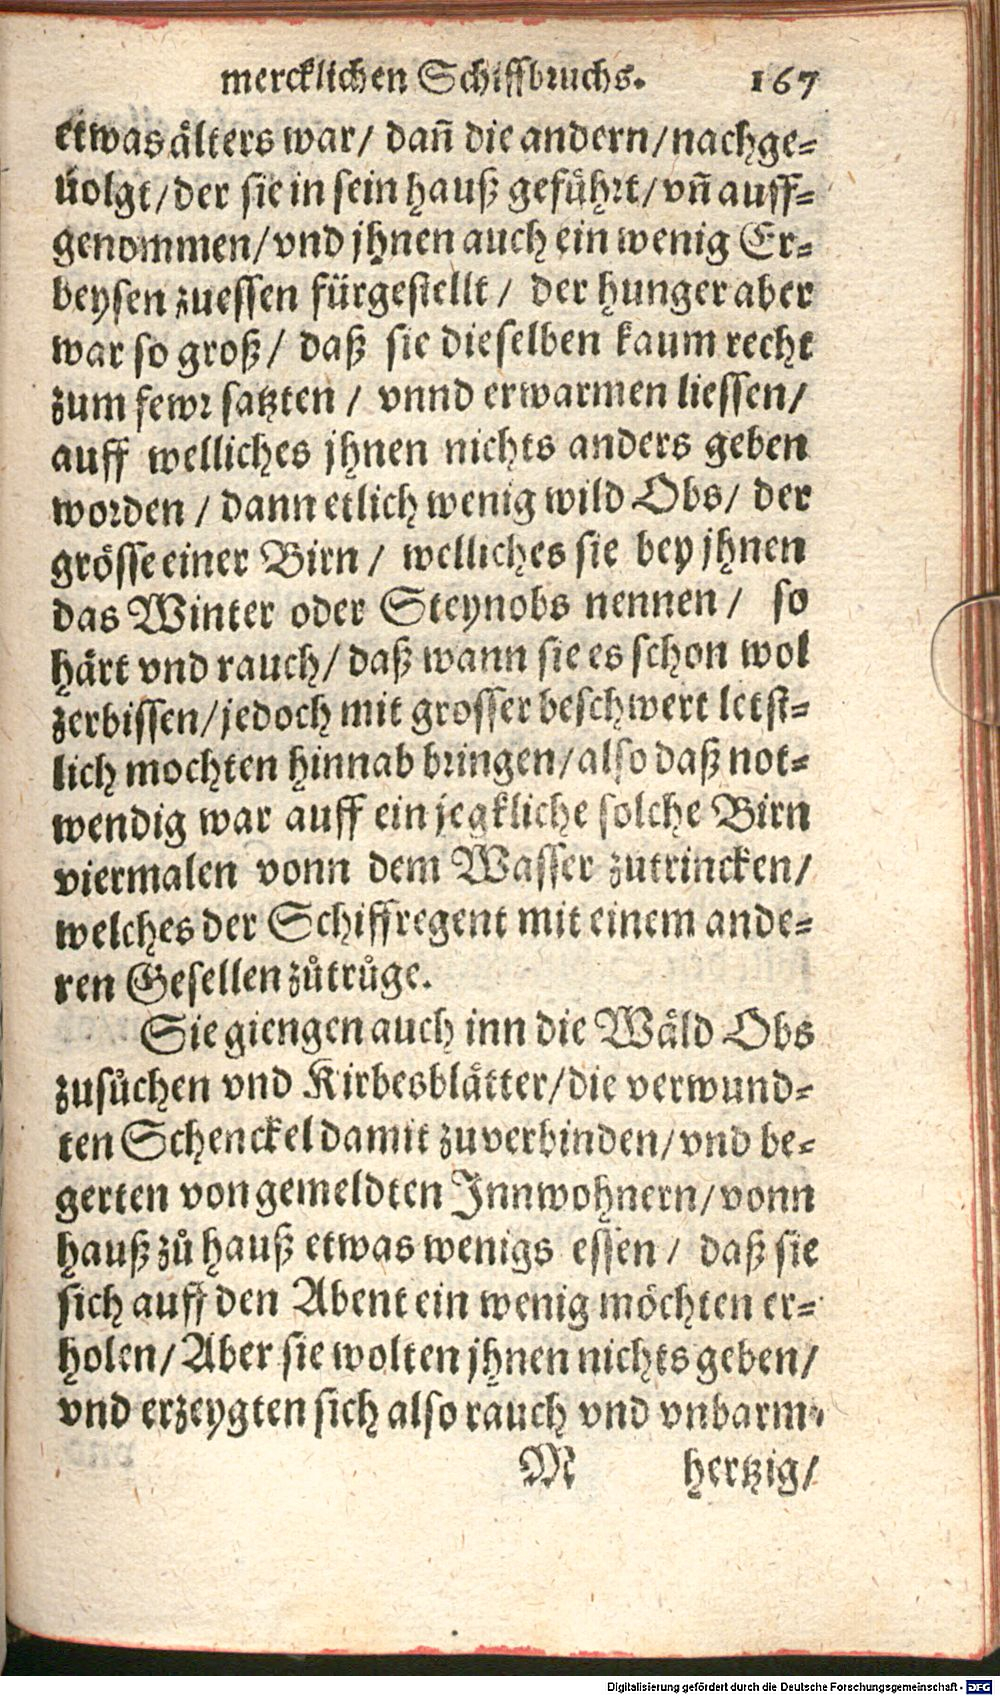 mercklichen Schiffbruchs. 167
etwas älters war/ dañ die andern/ nachge-
uolgt/ der sie in sein hauß geführt/ vñ auff-
genommen/ vnd jhnen auch ein wenig Er-
beysen zuessen fürgestellt/ der hunger aber
war so groß/ daß sie dieselben kaum recht
zum fewr satzten/ vnnd erwarmen liessen/
auff welliches jhnen nichts anders geben
worden/ dann etlich wenig wild Obs/ der
grösse einer Birn/ welliches sie bey jhnen
das Winter oder Steynobs nennen/ so
härt vnd rauch/ daß wann sie es schon wol
zerbissen/ jedoch mit grosser beschwert letst-
lich mochten hinnab bringen/ also daß not-
wendig war auff ein jegkliche solche Birn
viermalen vonn dem Wasser zutrincken/
welches der Schiffregent mit einem ande-
ren Gesellen zůtrůge.
Sie giengen auch inn die Wäld Obs
zusůchen vnd Kirbesblätter/ die verwund-
ten Schenckel damit zuverbinden/ vnd be-
gerten von gemeldten Innwohnern/ vonn
hauß zů hauß etwas wenigs essen/ daß sie
sich auff den Abent ein wenig möchten er-
holen/ Aber sie wolten jhnen nichts geben/
vnd erzeygten sich also rauch vnd vnbarm-
M hertzig/
Digitalisierung gefördert durch die Deutsche Forschungsgemeinschaft - DFG